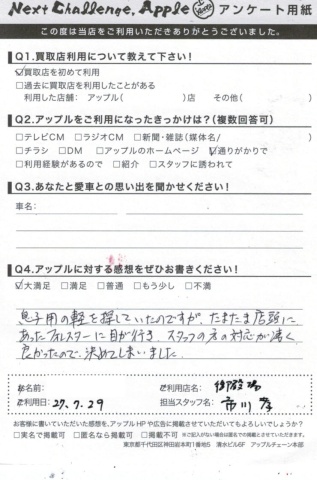 Next Challenge, Apple アンケート用紙
この度は当店をご利用いただきありがとうございました。
Q1.買取店利用について教えて下さい!
☑買取店を初めて利用
□過去に買取店を利用したことがある
利用した店舗: アップル( )店 その他( )
Q2.アップルをご利用になったきっかけは?(複数回答可)
□テレビCM □ラジオCM □新聞・雑誌(媒体名/ )
□チラシ □DM □アップルのホームページ ☑通りがかりで
□利用経験があるので □紹介 □スタッフに誘われて
Q3.あなたと愛車との思い出を聞かせください!
車名:
Q4.アップルに対する感想をぜひお書きください!
☑大満足 □満足 □普通 □もう少し □不満
息子用の軽を探していたのですが、たまたま店頭に
あったフォレスターに目が行き、スタッフの方の対応が凄く
良かったので、決めてしまいました。
お名前: ご利用店名: 御殿場
ご利用日: 27.7.29 担当スタッフ名: 市川
お客様に書いていただいた感想を、アップルHPや広告に掲載させていただいてもよろしいでしょうか?
□実名で掲載可 □匿名なら掲載可 □掲載不可 ※ご記入がない場合は匿名での掲載とさせていただきます。
東京都千代田区神田岩本町1番地5 清水ビル6F アップルチェーン本部